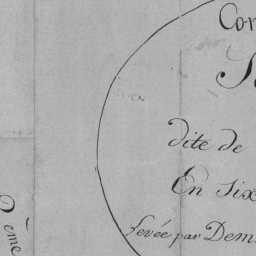 Con
dite de
En Six
levée par Dem
eme